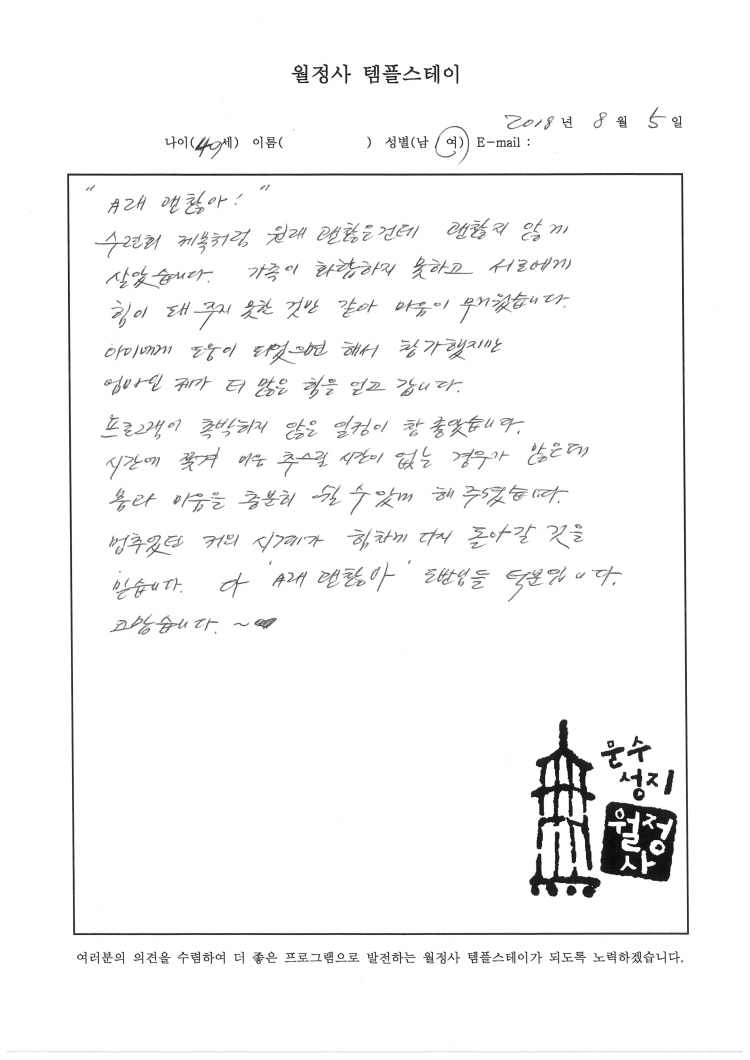 월정사 템플스테이
2018 년 8 월 5 일
나이(49세) 이름( ) 성별(남 / 여) E-mail :
"본래 괜찮아!"
수련회 제목처럼 원래 괜찮은건데 괜찮지 않게
살았습니다. 가족이 화합하지 못하고 서로에게
힘이 돼 주지 못한 것만 같아 마음이 무거웠습니다.
아이에게 도움이 되었으면 해서 참가했지만
엄마인 제가 더 많은 힘을 얻고 갑니다.
프로그램이 촉박하지 않은 일정이 참 좋았습니다.
시간에 쫓겨 마음 추스릴 시간이 없는 경우가 많은데
몸과 마음을 충분히 쉴 수 있게 해 주셨습니다.
멈추었던 저의 시계가 힘차게 다시 돌아갈 것을
믿습니다. 다 '본래 괜찮아' 덕분입니다.
고맙습니다. ~
문수
성지
월정
사
여러분의 의견을 수렴하여 더 좋은 프로그램으로 발전하는 월정사 템플스테이가 되도록 노력하겠습니다.